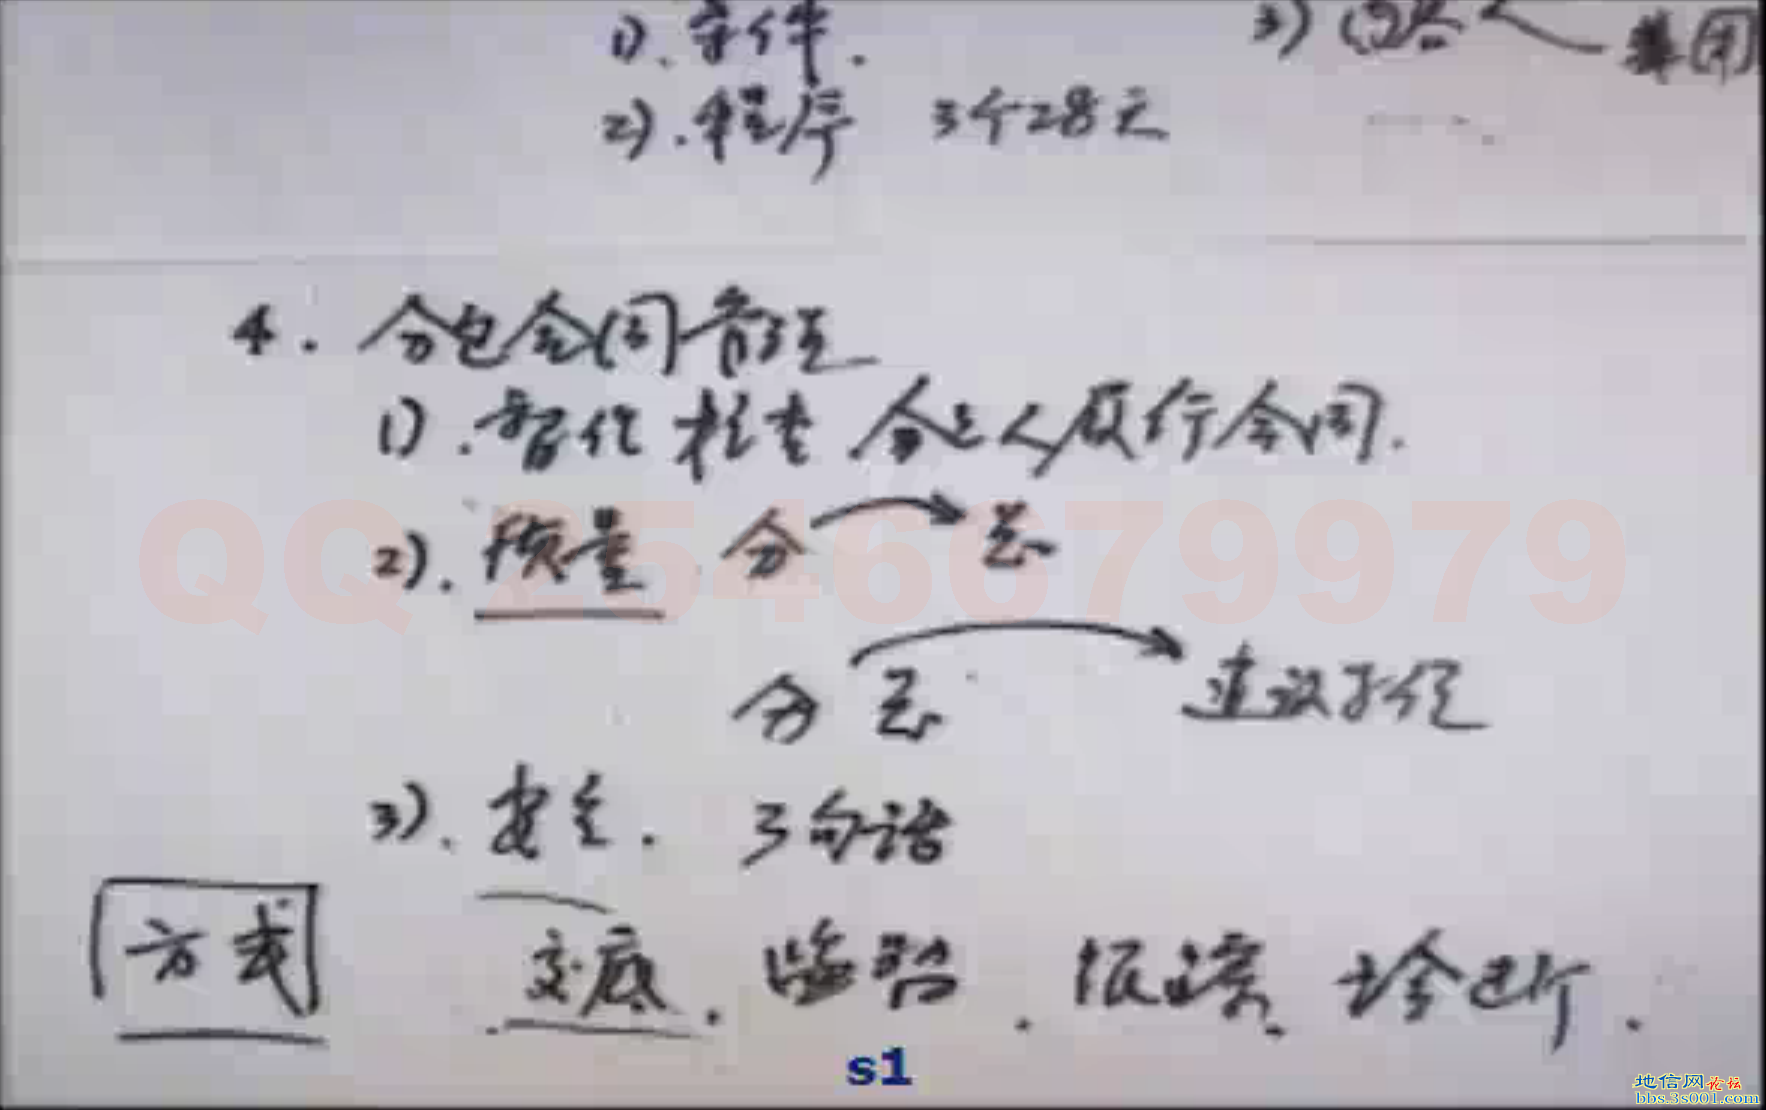 1). 条件.
2). 程序 3个28天
3)
4. 分包合同管理
1). 督促检查分包人履行合同.
2). 质量 分 总
分 总 建设单位
3). 安全. 3句话
方式 交底. 跟踪. 诊断.
QQ 2546679979
s1
地信网论坛
bbs.3s001.com